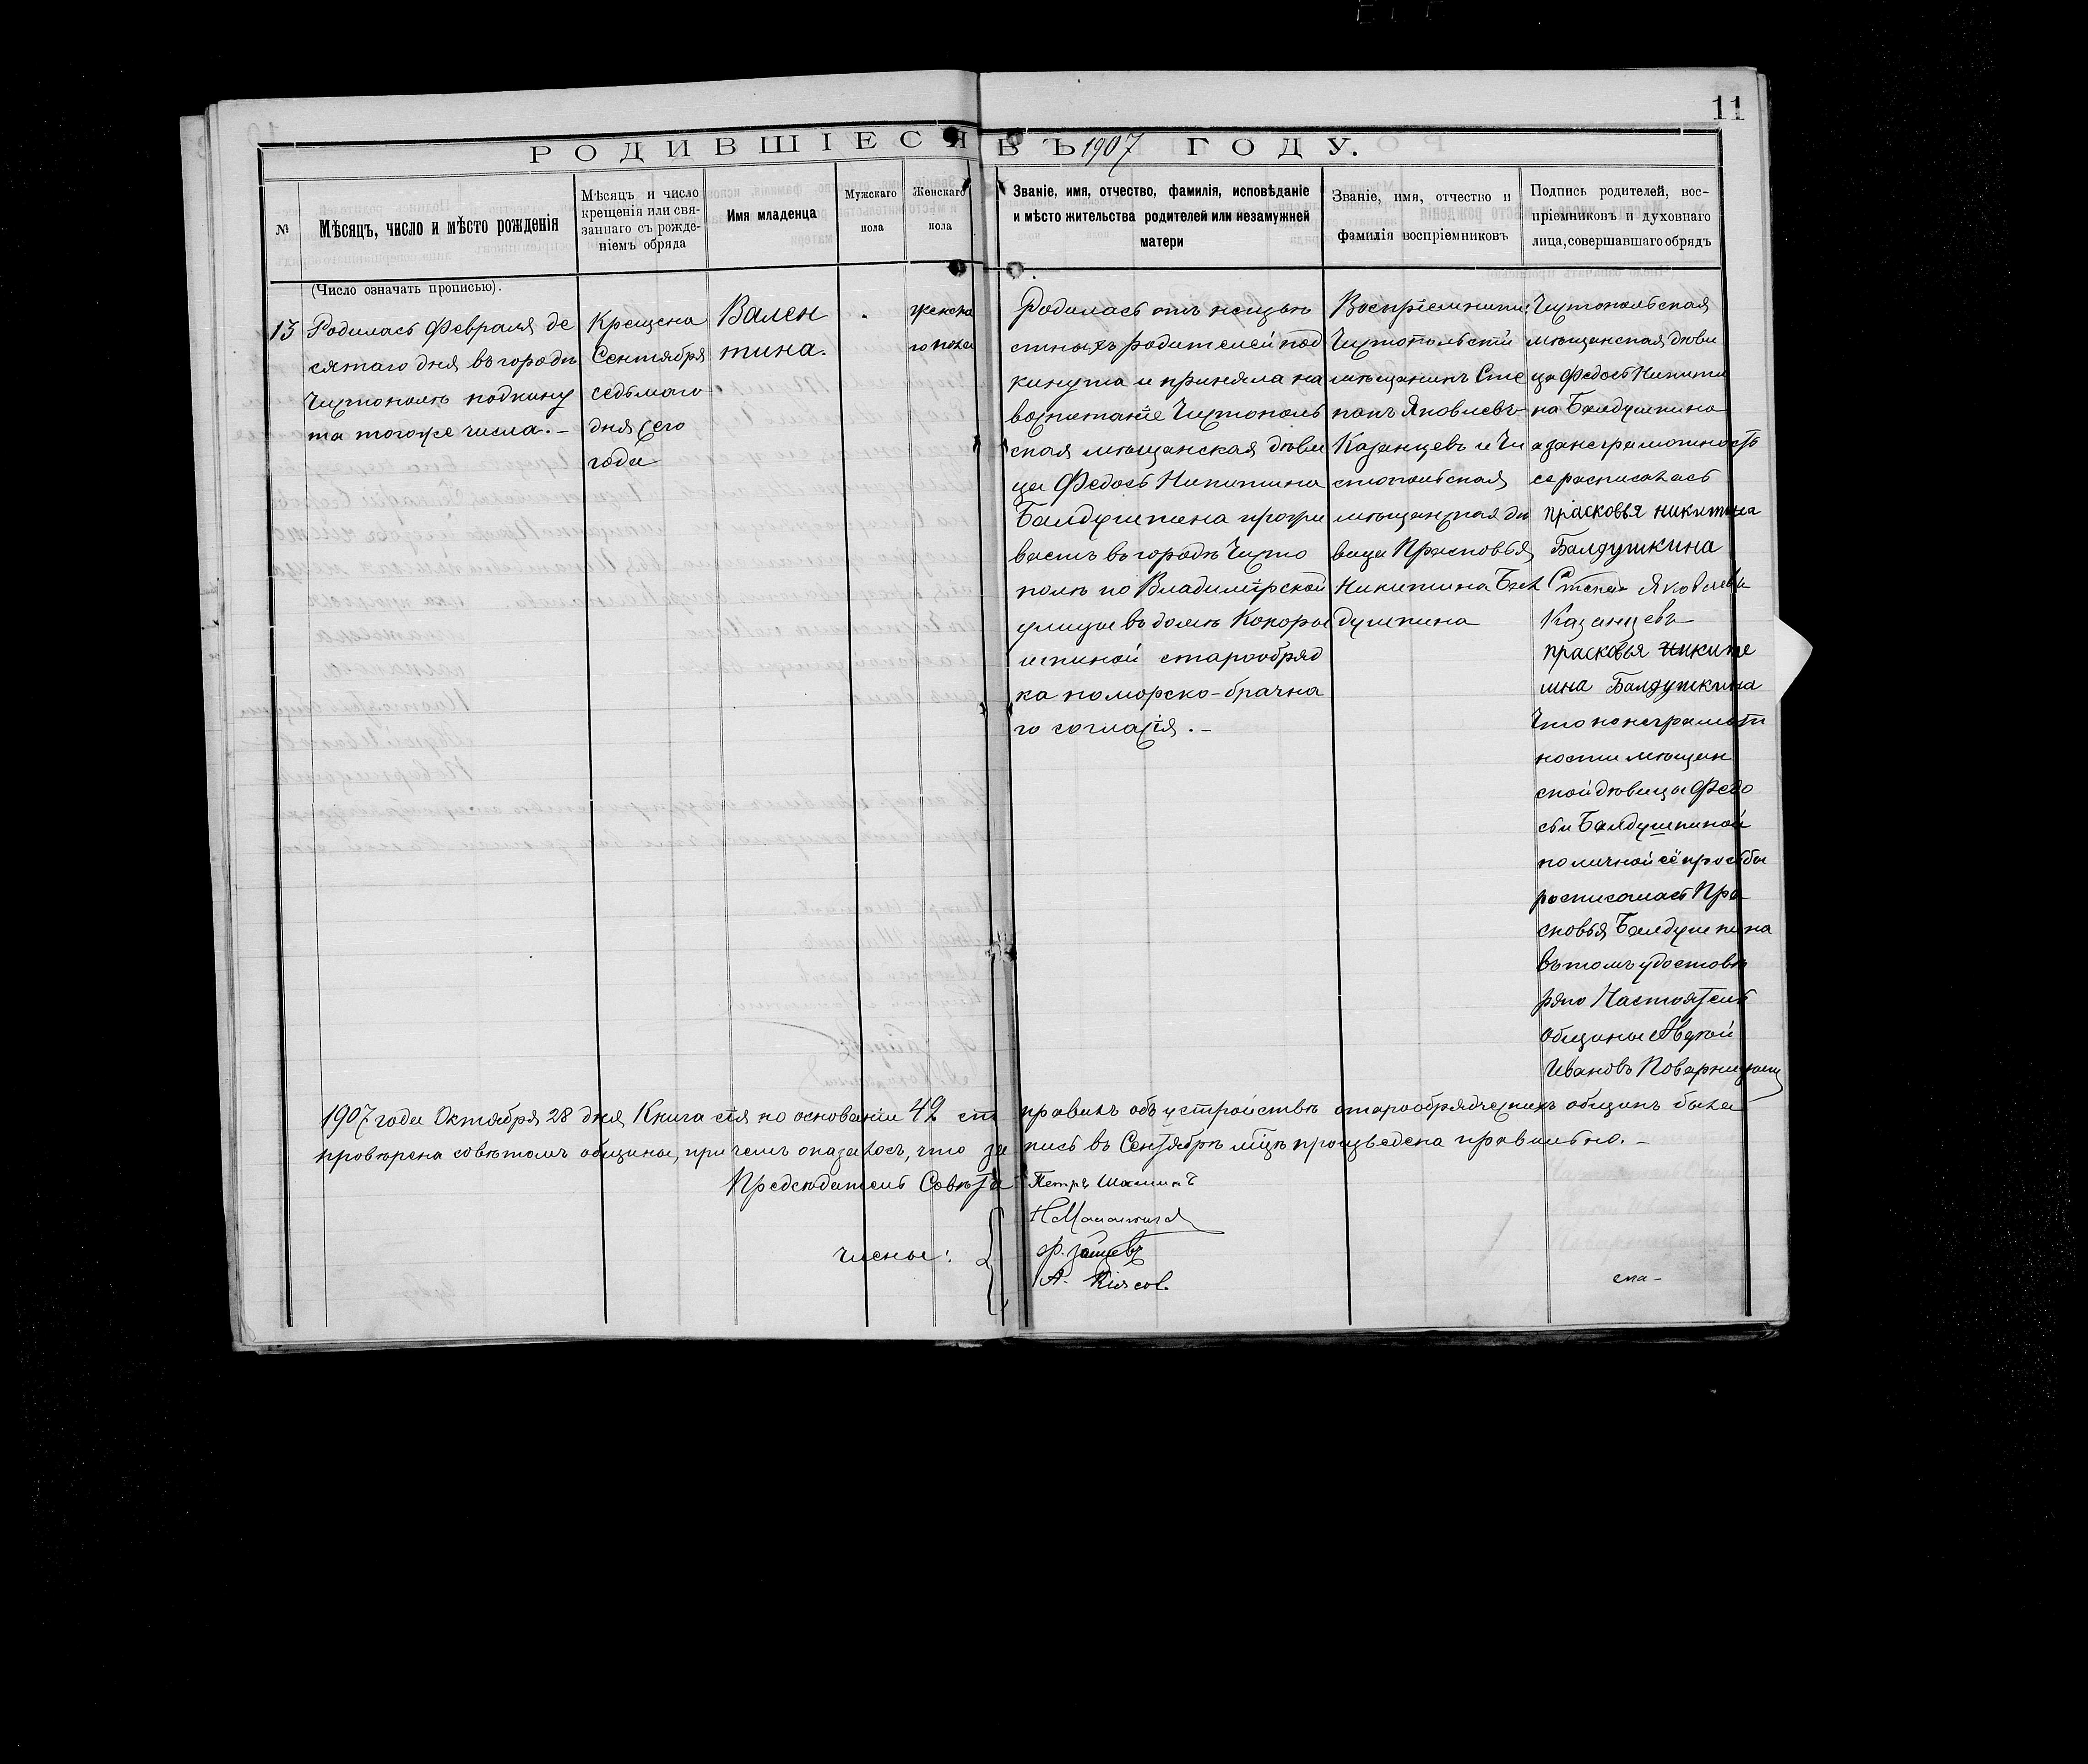 11
РОДИВШІЕСЯ ВЪ 1907 ГОДУ.
№
Мѣсяцъ, число и мѣсто рожденія
Мѣсяцъ и число
крещенія или свя-
заннаго съ рожде-
ніемъ обряда
Имя младенца
Мужскаго
пола
Женскаго
пола
Званіе, имя, отчество, фамилія, исповѣданіе
и мѣсто жительства родителей или незамужней
матери
Званіе, имя, отчество и
фамилія воспріемниковъ
Подпись родителей, вос-
пріемниковъ и духовнаго
лица, совершавшаго обрядъ
(Число означать прописью).
13
Родилась Февраля де
сятаго дня въ городѣ
Чистополѣ подкину
та тогоже числа.-
Крещена
Сентября
седьмого
дня сего
года
Вален
тина.
женска
го пола
Родилась отъ неизвѣ
стныхъ родителей под
кинута и приняла на
воспитаніе Чистополь
ская мѣщанская дѣви
ца Федосья Никитина
Балдушкина прожи
ваетъ въ городѣ Чисто
полѣ по Владимірской
улицѣ въ домѣ Кокоро
шкиной старообряд
ка поморско-брачна
го согласія.-
Воспріемники
Чистопольскій
мѣщанинъ Сте
панъ Яковлевъ
Казанцевъ и Чи
стопольская
мѣщанская дѣ
вица Прасковья
Никитина Бал
душкина
Чистопольская
мѣщанская дѣви
ца Федосья Никити
на Балдушкина
а за неграмотность
ее расписалась
прасковья никитина
Балдушкина
Степан Яковлевъ
Казанцевъ
прасковья никите
ина Балдушкина
Что по неграмот
ности мѣщан
ской дѣвицы Федо
сьи Балдушкиной
по личной её просьбы
росписалась Пра
сковья Балдушкина
въ томъ удостовѣ
ряю Настоятель
общины Авдѣй
Ивановъ Поварницынъ
1907 года Октября 28 дня Книга сія на основаніи 42 ст правилъ объ устройствѣ старообрядческихъ общинъ была
провѣрена совѣтомъ общины, при чемъ оказалось, что за пись въ Сентябрѣ мѣцѣ произведена правильно.-
Предсѣдатель Совѣта Петръ Шашинъ
Члены:
Ф. Зайцевъ
А.